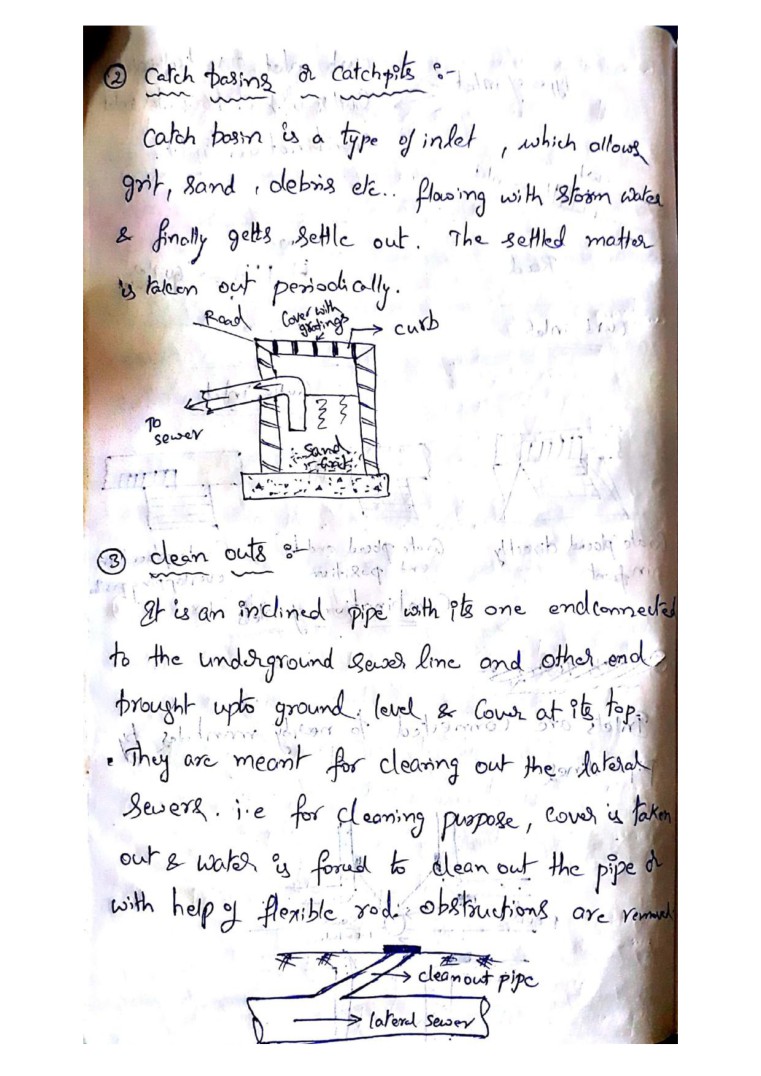 ② Catch basins or Catchpits :-
Catch basin is a type of inlet, which allows
grit, sand, debris etc.. flowing with storm water
& finally getts settle out. The settled matter
is taken out periodically.
Road
Cover with
gratings
curb
To
sewer
Sand
Grit
③ clean outs :-
It is an inclined pipe with its one end connected
to the underground sewer line and other end
brought upto ground level & Cover at its top.
• They are meant for clearing out the lateral
Sewers. i.e for cleaning purpose, cover is taken
out & water is forced to clean out the pipe or
with help of flexible rod obstructions, are removed
cleanout pipe
lateral sewer